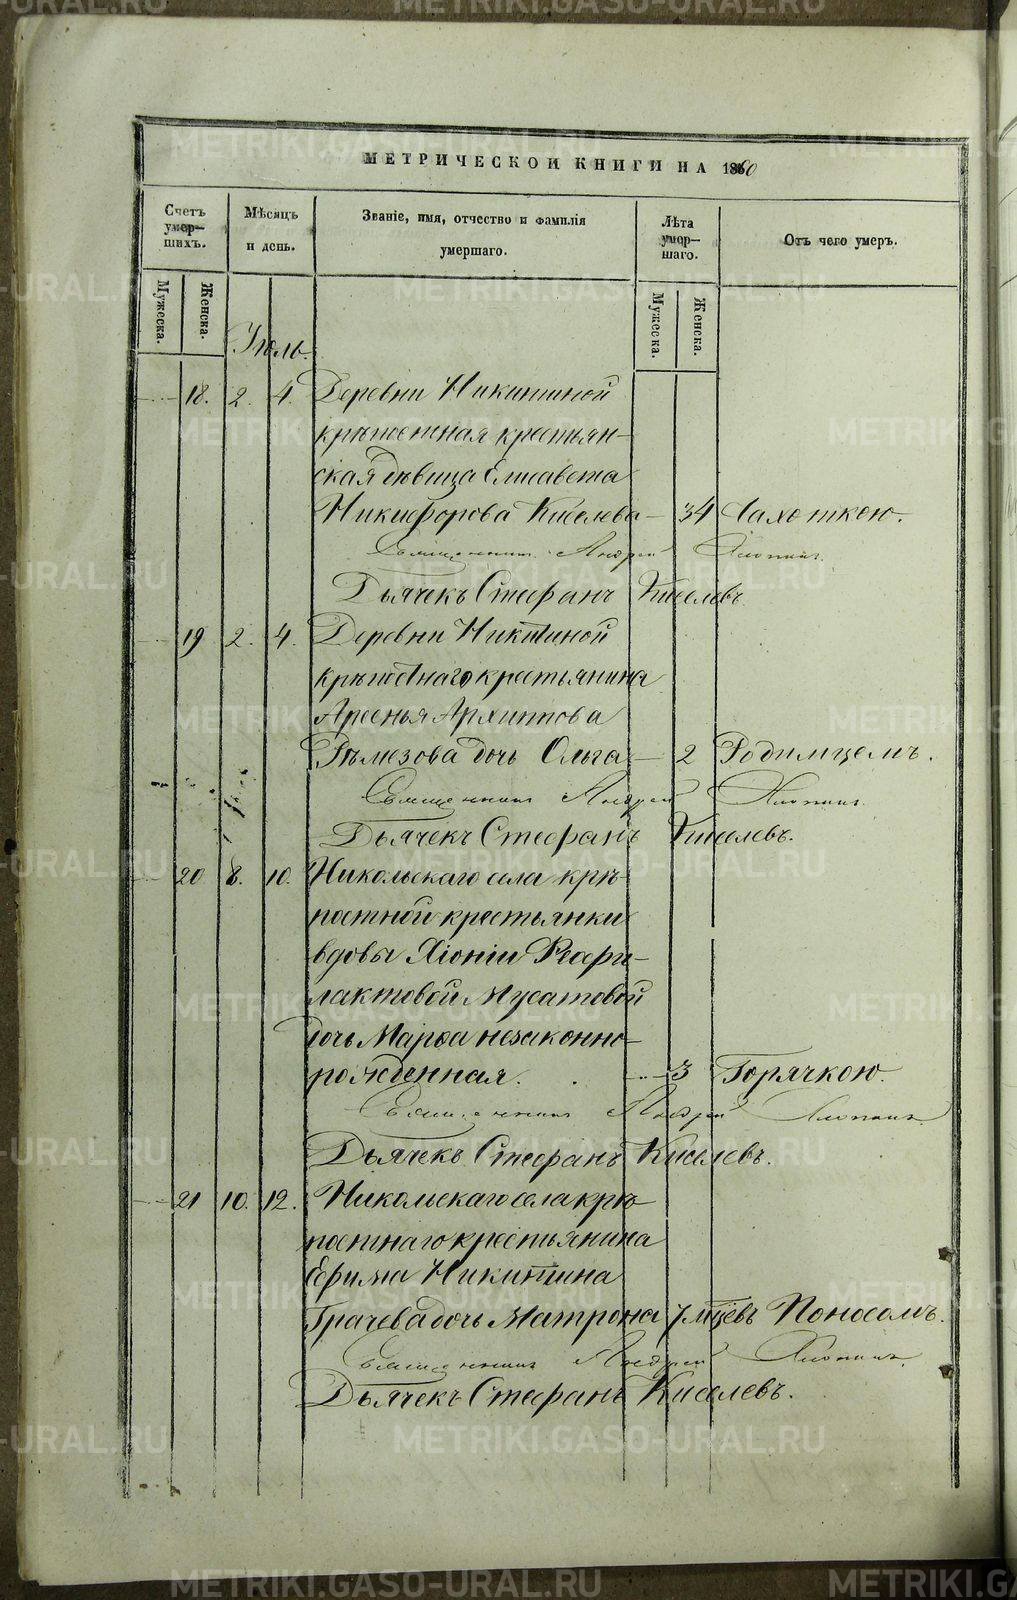 МЕТРИЧЕСКОЙ КНИГИ НА 1860
Счетъ умер—шихъ.
Мѣсяцъ и день.
Званіе, имя, отчество и фамилія умершаго.
Лѣта умер—шаго.
Отъ чего умеръ.
Мужеска.
Женска.
Мужеска.
Женска.
Іюль.
18. 2. 4. Деревни Никитиной
крѣпостная крестьян-
ская дѣвица Елисавета
Никифорова Киселева — 34 Чахоткою.
Священникъ Андрей Хлопинъ.
Дьячекъ Стефанъ Киселевъ
19 2. 4. Деревни Никитиной
крѣпостнаго крестьянина
Арсенья Архипова
Рѣмезова дочь Ольга — 2 Родимцемъ.
Священникъ Андрей Хлопинъ.
Дьячекъ Стефанъ Киселевъ.
20 8. 10. Никольскаго села крѣ-
постной крестьянки
вдовы Хіоніи Феофи-
лактовой Мусатовой
дочь Марфа незаконно-
рожденная. — 3 Горячкою.
Священникъ Андрей Хлопинъ
Дьячекъ Стефанъ Киселевъ.
21 10. 12. Никольскаго села крѣ-
постнаго крестьянина
Ефима Никитина
Грачева дочь Матрона 7 мцевъ Поносомъ.
Священникъ Андрей Хлопинъ.
Дьячекъ Стефанъ Киселевъ.
METRIKI.GASO-URAL.RU